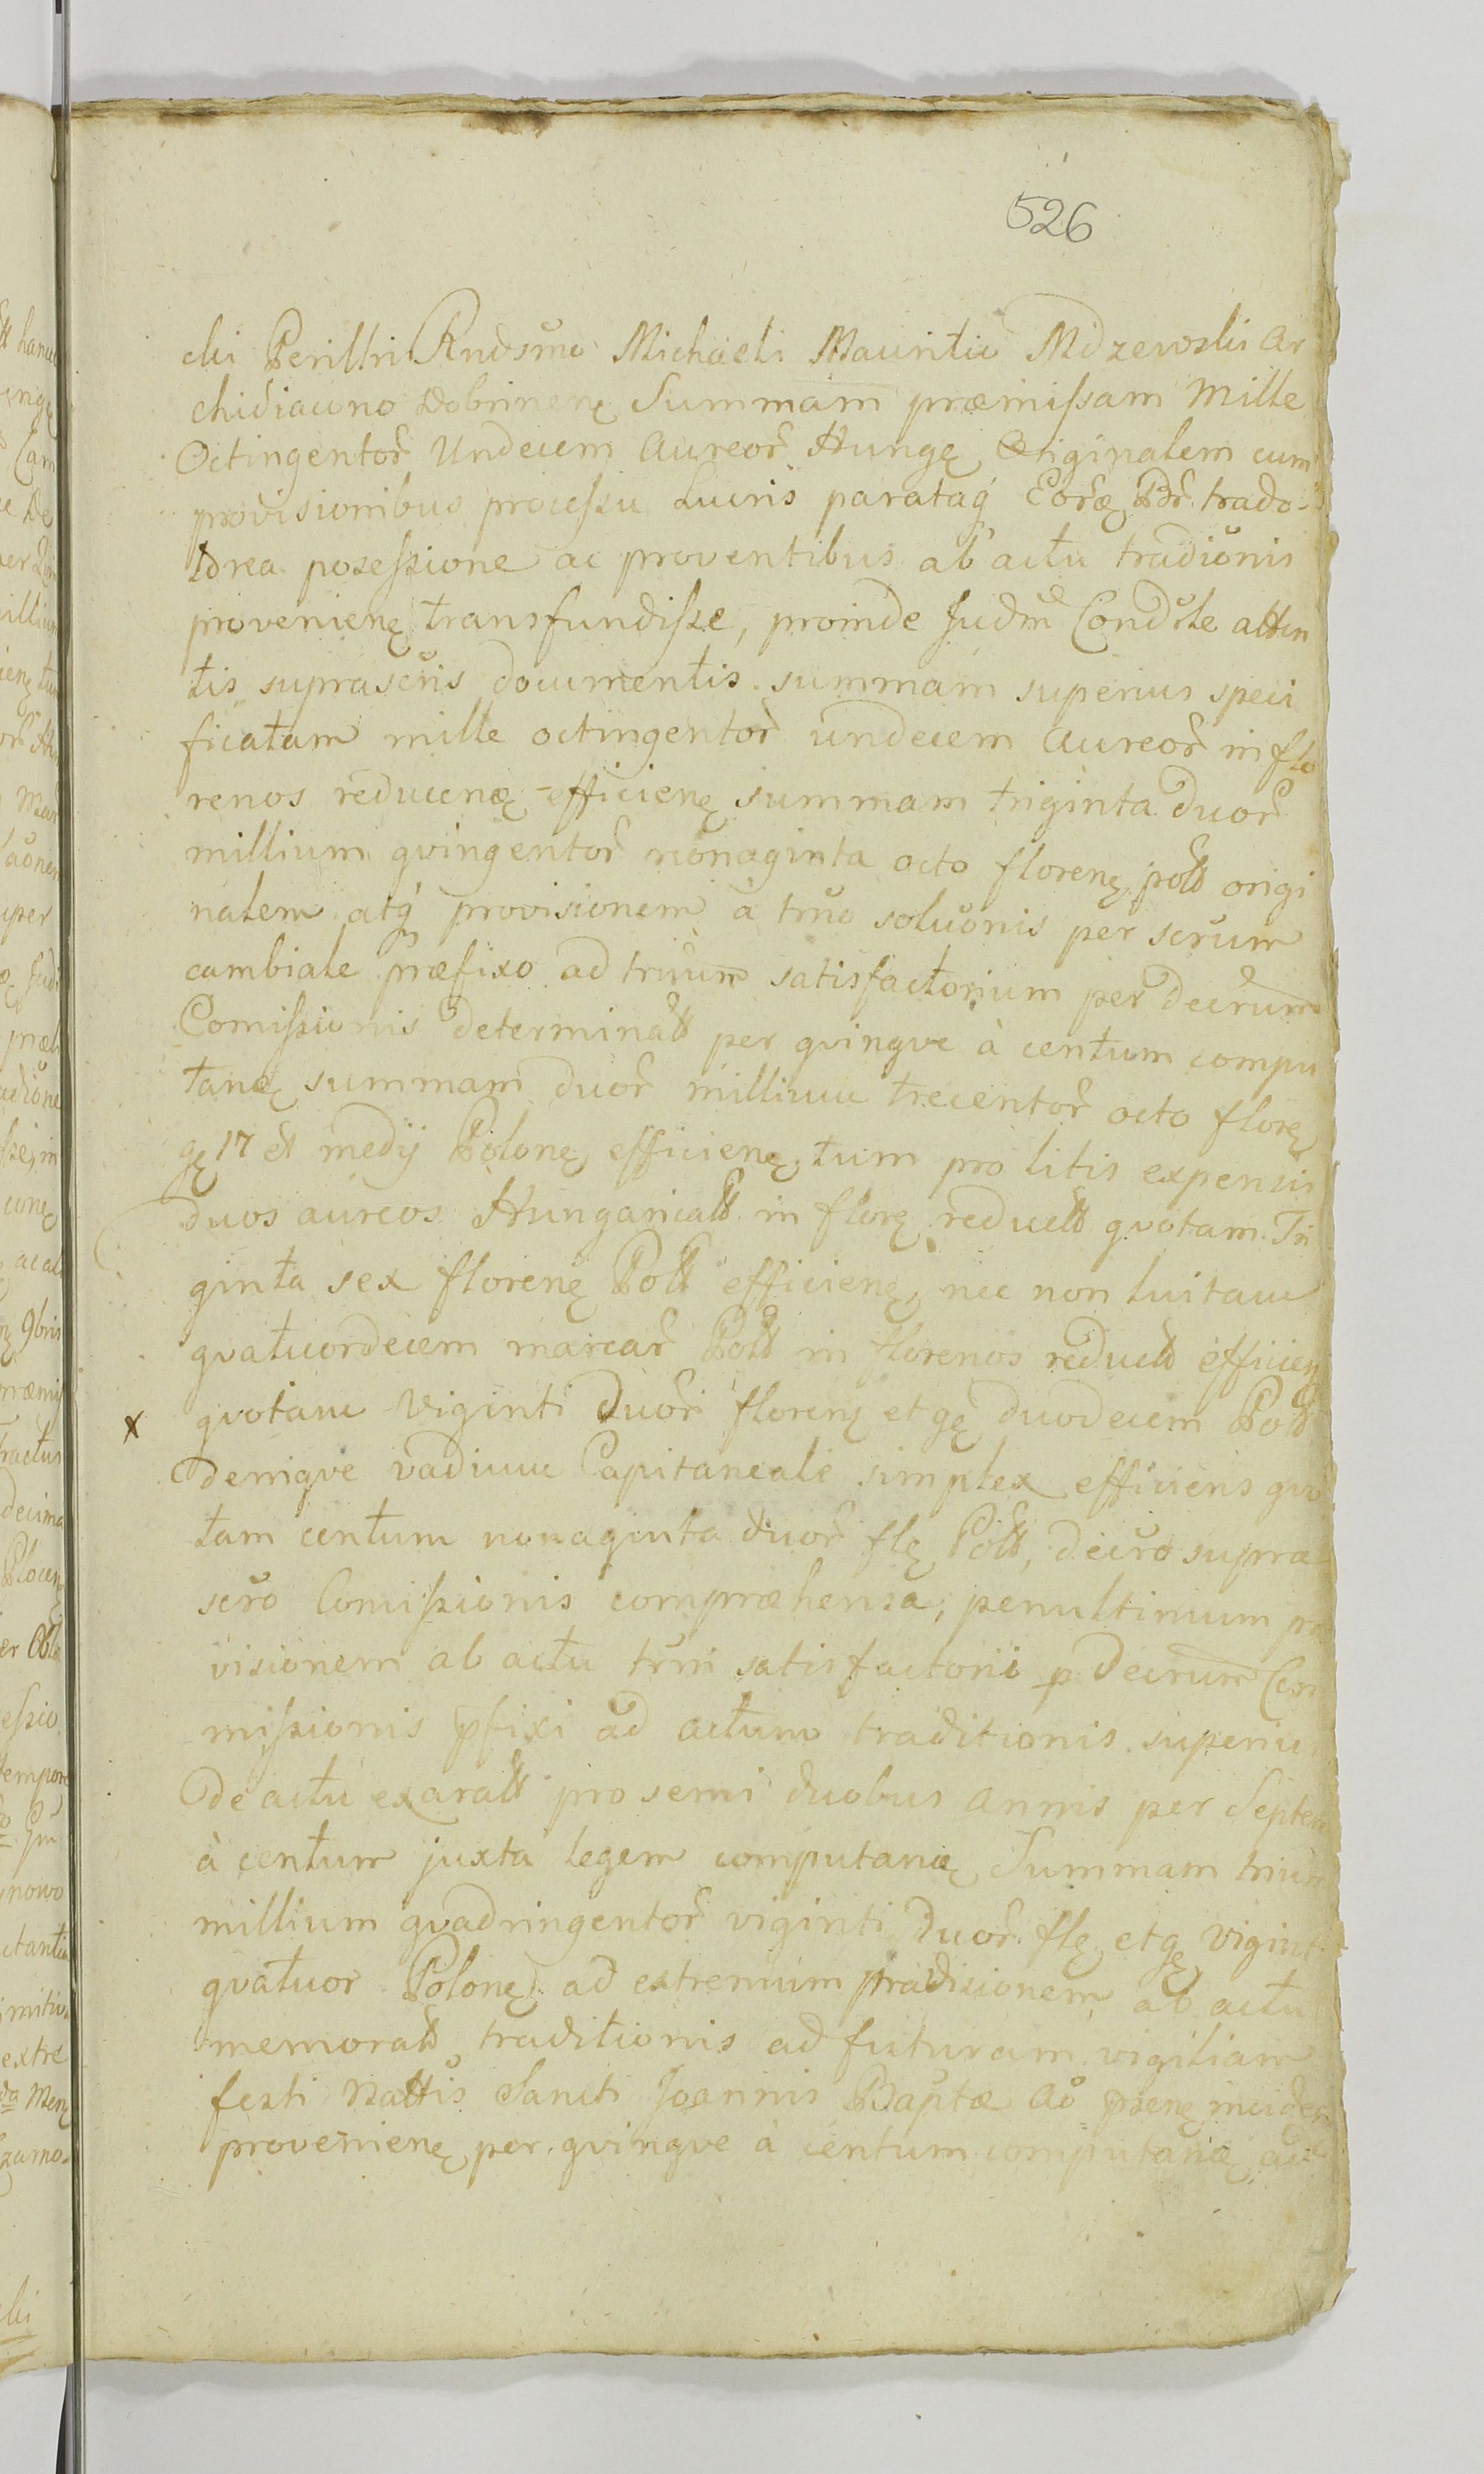 526
cki Perillri Rndsmo Michaeli Mauritio Mdzewski Ar
chidiacono Dobrinenę Summam præmissam Mille
Octingentor̃ Undecem Aureor̃ Hungę Originalem cum
provisionibus processu Lucris parataq́
posessione ac proventibus ab actu tradi̊onis
provenienę transfundisse, proinde Judm̃ Conds̃le atten
tis suprascr̃is documentis summam superius speci
ficatam mille octingentor̃ undecem Aureor̃ in flo
renos reducenę efficienę summam triginta duor̃
millium qvingentor̃ nonaginta octo florenę poltt origi
nalem atq́ provisionem à trm̃o soluõnis per scr̃um
cambiale præfixo ad trm̃um satisfactorium per decr̃um
Comissionis determinatt per qvinqve à centum compu
tanę summam duor̃ millium trecentor̃ octo florę
gę 17 et medij Polonę efficienę, tum pro litis expensis
duos aureos Hungaricatt in florę reductt qvotam Tri
ginta sex florenę Poltt efficienę, nec non luitam
qvatuordecem marcar̃ Poltt in florenos reductt efficienę
x qvotam viginti duor̃ florenę et gę duodecem Poltt
deniqve vadium Capitaneale simplex efficiens qvo
tam centum nonaginta duor̃ flę Poltt, decr̃o supra
scr̃o Comissionis compræhensa, penultimum pro
visionem ab actu trm̃i satisfactorii p decr̃um Com
missionis p̃fixi ad actum traditionis superius
de actu exaratt pro semi duobus annis per Septem
à centum juxta legem computanę Summam trium
millium qvadringentor̃ viginti duor̃ flę et gę viginti
qvatuor Polonę ad extremum provisionem ab actu
memoratt traditionis ad futuram vigiliam
festi Nattis Sancti Joannis Baptæ Aõ præsenę inciden
provenienę per qvinqve à centum computanę ac